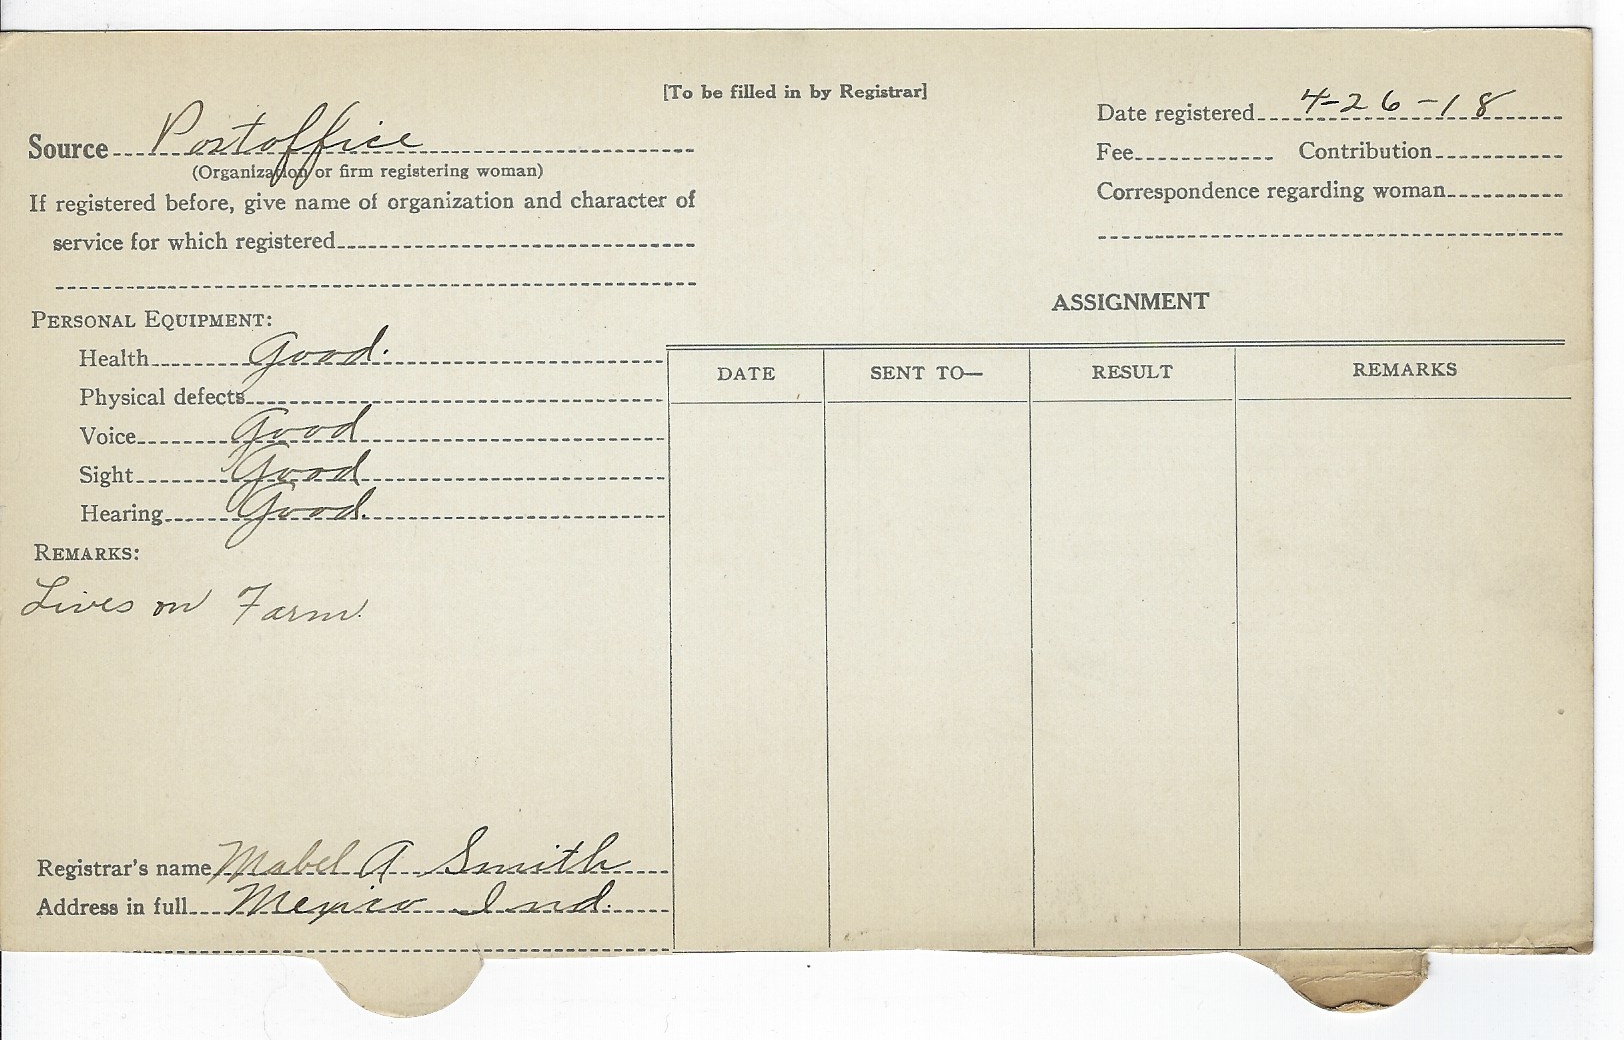 [To be filled in by Registrar]
Source Postoffice
(Organization or firm registering woman)
If registered before, give name of organization and character of
service for which registered
Date registered 4-26-18
Fee Contribution
Correspondence regarding woman
PERSONAL EQUIPMENT:
Health Good.
Physical defects
Voice Good
Sight Good
Hearing Good.
REMARKS:
Lives on Farm.
Registrar's name Mabel A Smith
Address in full Mexico Ind.
ASSIGNMENT
DATE SENT TO— RESULT REMARKS